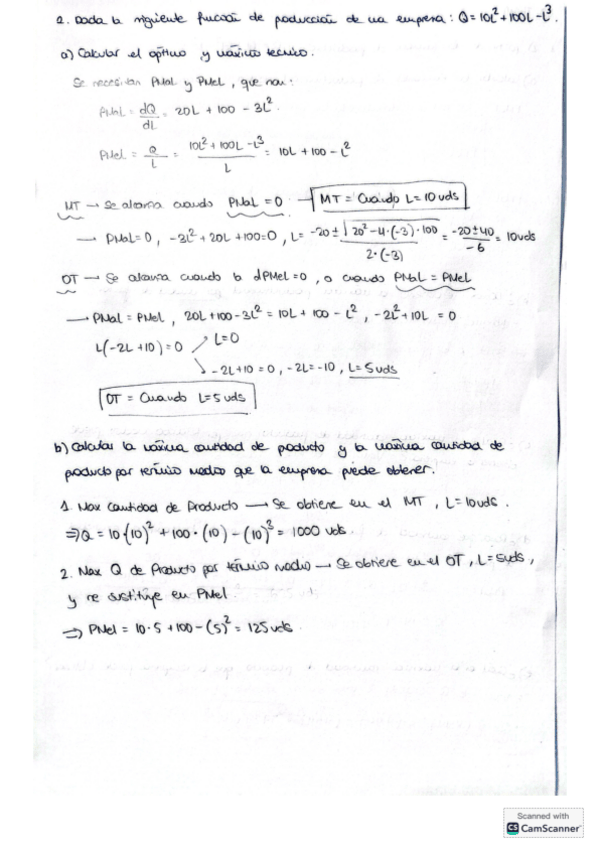 2. Dada la siguiente función de producción de una empresa: Q = 10L² + 100L - L³.
a) Calcular el óptimo y máximo técnico.
Se necesitan PMaL y PMeL, que son:
PMaL = dQ/dL = 20L + 100 - 3L².
PMeL = Q/L = (10L² + 100L - L³)/L = 10L + 100 - L²
MT → Se alcanza cuando PMaL = 0 → MT = Cuando L = 10 uds
→ PMaL = 0, -3L² + 20L + 100 = 0, L = (-20 ± √(20² - 4·(-3)·100))/(2·(-3)) = (-20 ± 40)/(-6) = 10 uds
OT → Se alcanza cuando la dPMeL = 0, o cuando PMaL = PMeL
→ PMaL = PMeL, 20L + 100 - 3L² = 10L + 100 - L², -2L² + 10L = 0
L(-2L + 10) = 0 ↗ L = 0
↘ -2L + 10 = 0, -2L = -10, L = 5 uds
OT = Cuando L = 5 uds
b) Calcular la máxima cantidad de producto y la máxima cantidad de
producto por término medio que la empresa puede obtener.
1. Max Cantidad de Producto → Se obtiene en el MT, L = 10 uds.
⇒ Q = 10·(10)² + 100·(10) - (10)³ = 1000 uds
2. Max Q de Producto por término medio → Se obtiene en el OT, L = 5 uds,
y se sustituye en PMeL
⇒ PMeL = 10·5 + 100 - (5)² = 125 uds.
Scanned with
CS CamScanner